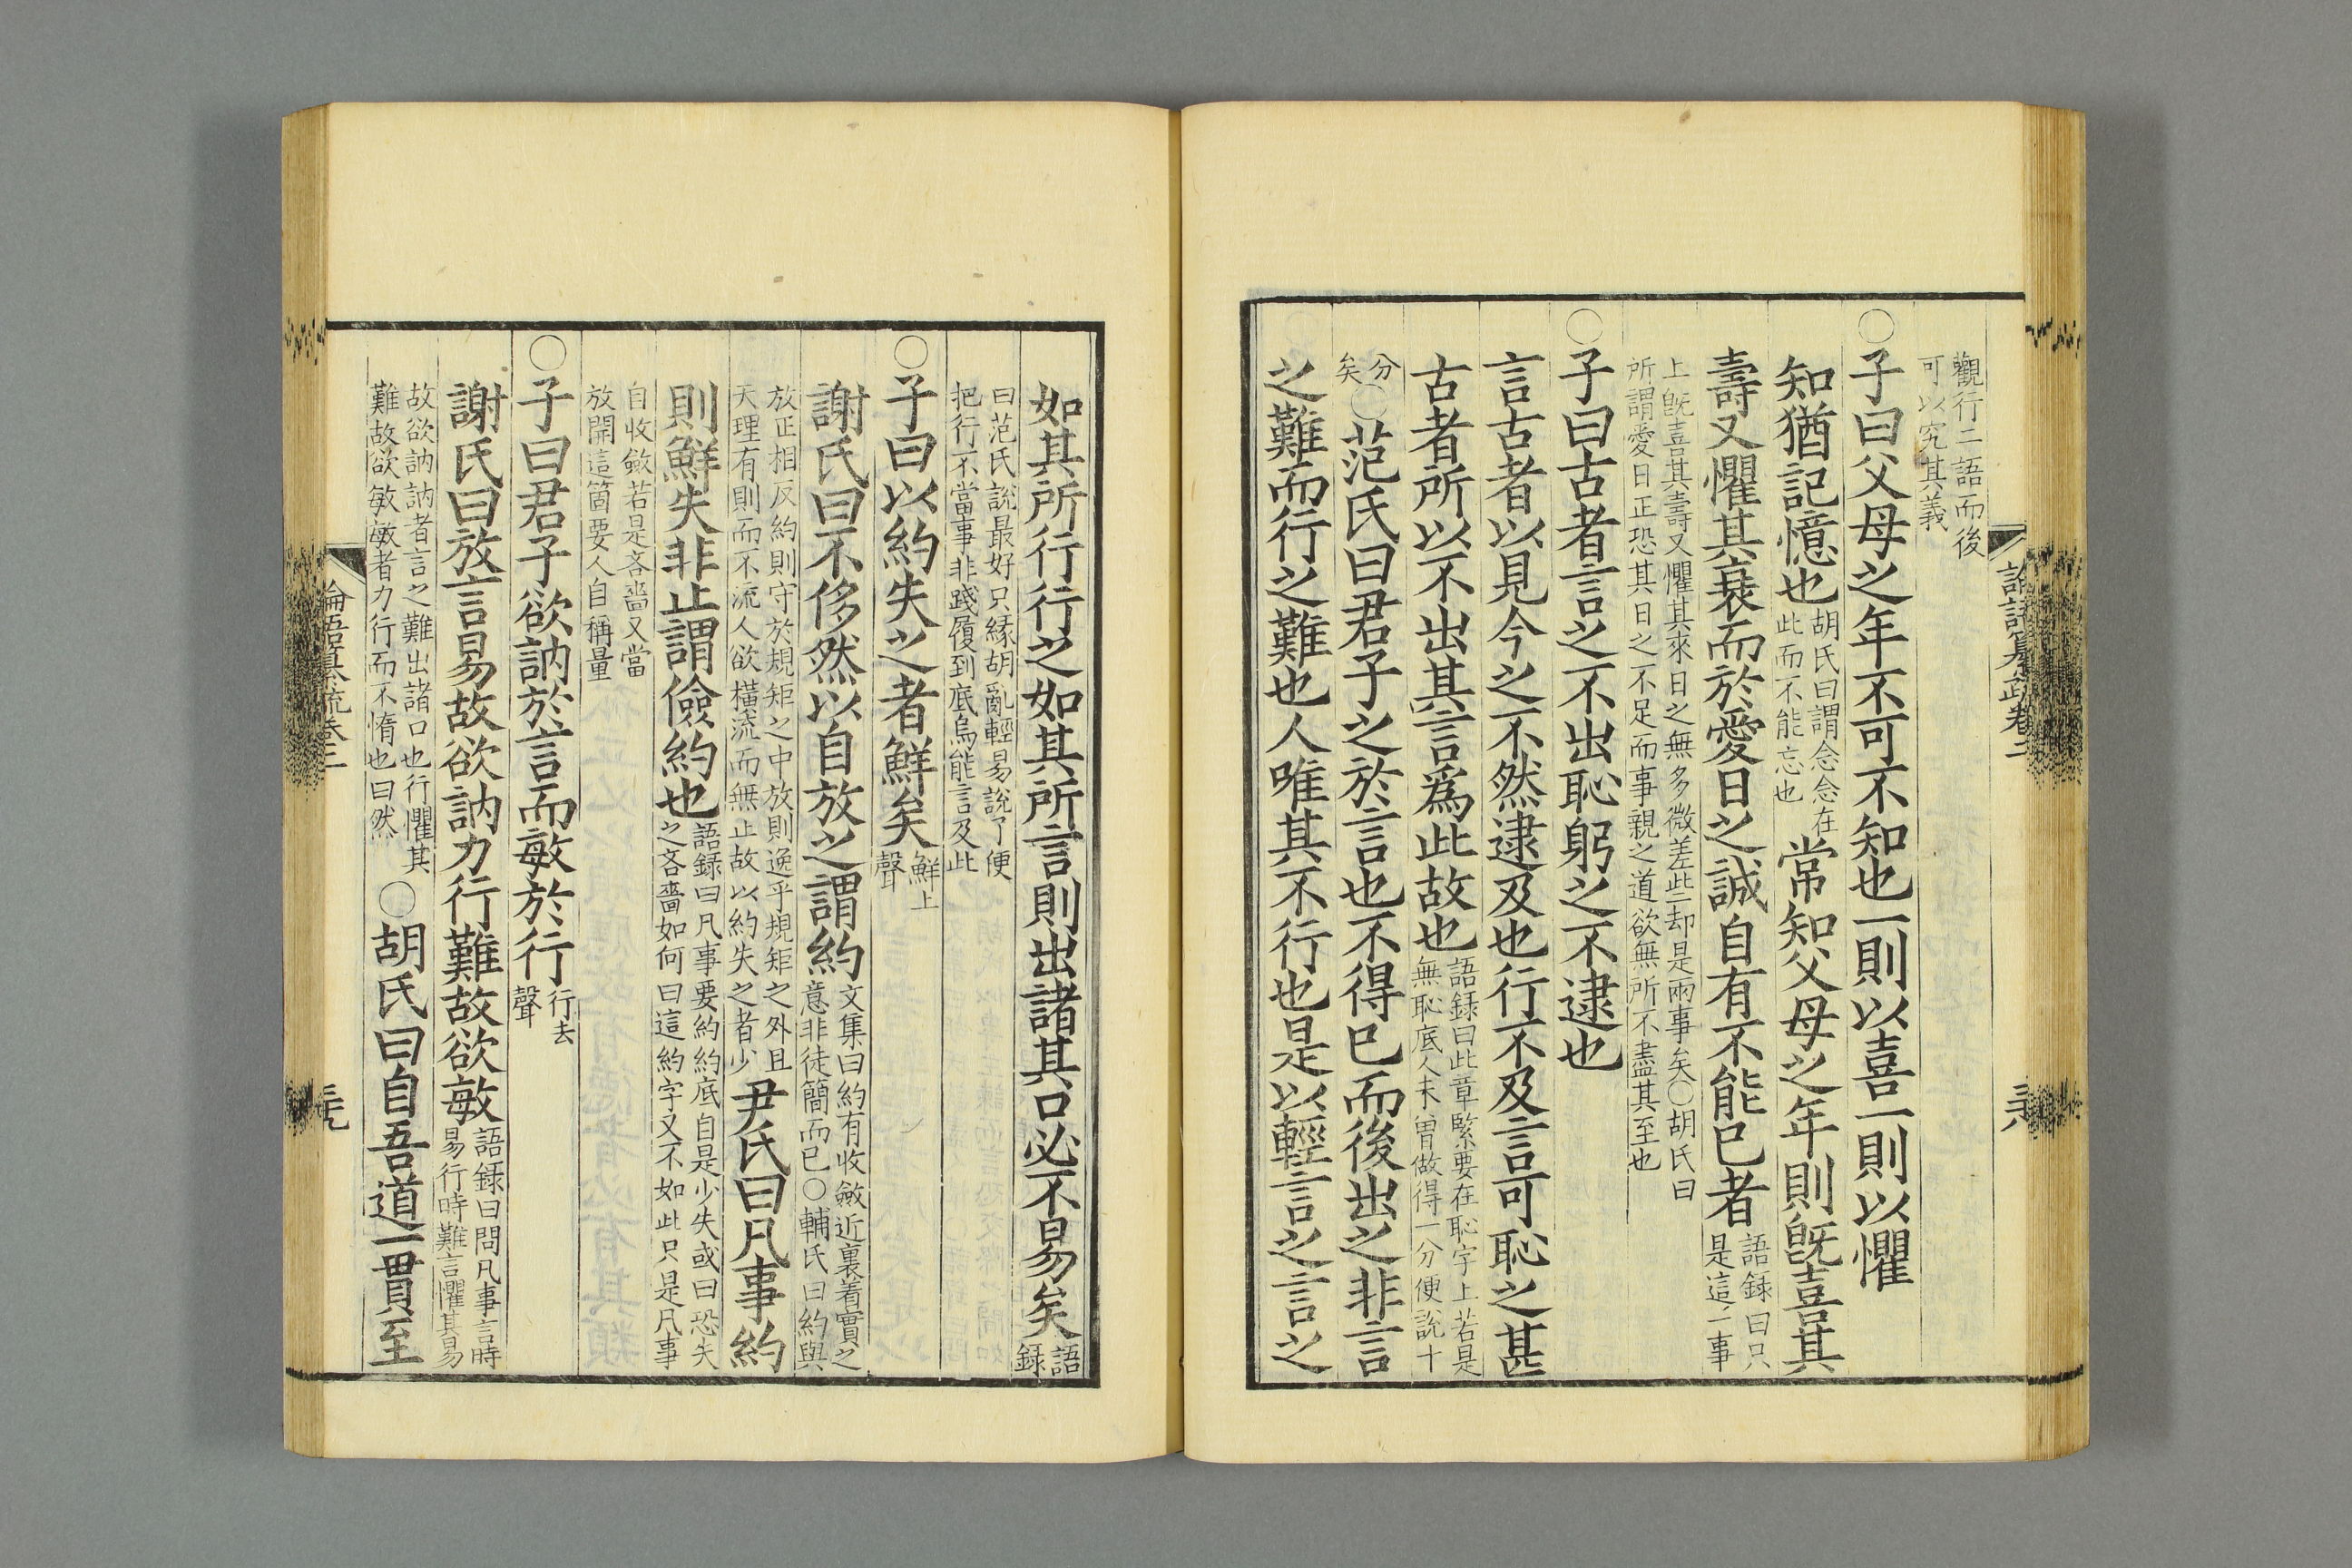 觀行二語而後
可以究其義
○子曰父母之年不可不知也一則以喜一則以懼
知猶記憶也
胡氏曰謂念念在
此而不能忘也
常知父母之年則旣喜其
壽又懼其衰而於愛日之誠自有不能已者
語録曰只
是這一事
上旣喜其壽又懼其來日之無多微差些却是兩事矣○胡氏曰
所謂愛日正恐其日之不足而事親之道欲無所不盡其至也
○子曰古者言之不出恥躬之不逮也
言古者以見今之不然逮及也行不及言可恥之甚
古者所以不出其言爲此故也
語録曰此章緊要在恥字上若是
無恥底人未曾做得一分便說十
分
矣
○范氏曰君子之於言也不得已而後出之非言
之難而行之難也人唯其不行也是以輕言之言之
如其所行行之如其所言則出諸其口必不易矣
語
録
曰范氏說最好只緣胡亂輕易說了便
把行不當事非踐履到底烏能言及此
○子曰以約失之者鮮矣
鮮上
聲
謝氏曰不侈然以自放之謂約
文集曰約有收斂近裏着實之
意非徒簡而已○輔氏曰約與
放正相反約則守於規矩之中放則逸乎規矩之外且
天理有則而不流人欲橫流而無止故以約失之者少
尹氏曰凡事約
則鮮失非止謂儉約也
語録曰凡事要約約底自是少失或曰恐失
之吝嗇如何曰這約字又不如此只是凡事
自收斂若是吝嗇又當
放開這箇要人自稱量
○子曰君子欲訥於言而敏於行
行去
聲
謝氏曰放言易故欲訥力行難故欲敏
語録曰問凡事言時
易行時難言懼其易
故欲訥訥者言之難出諸口也行懼其
難故欲敏敏者力行而不惰也曰然
○胡氏曰自吾道一貫至
論語纂疏卷二